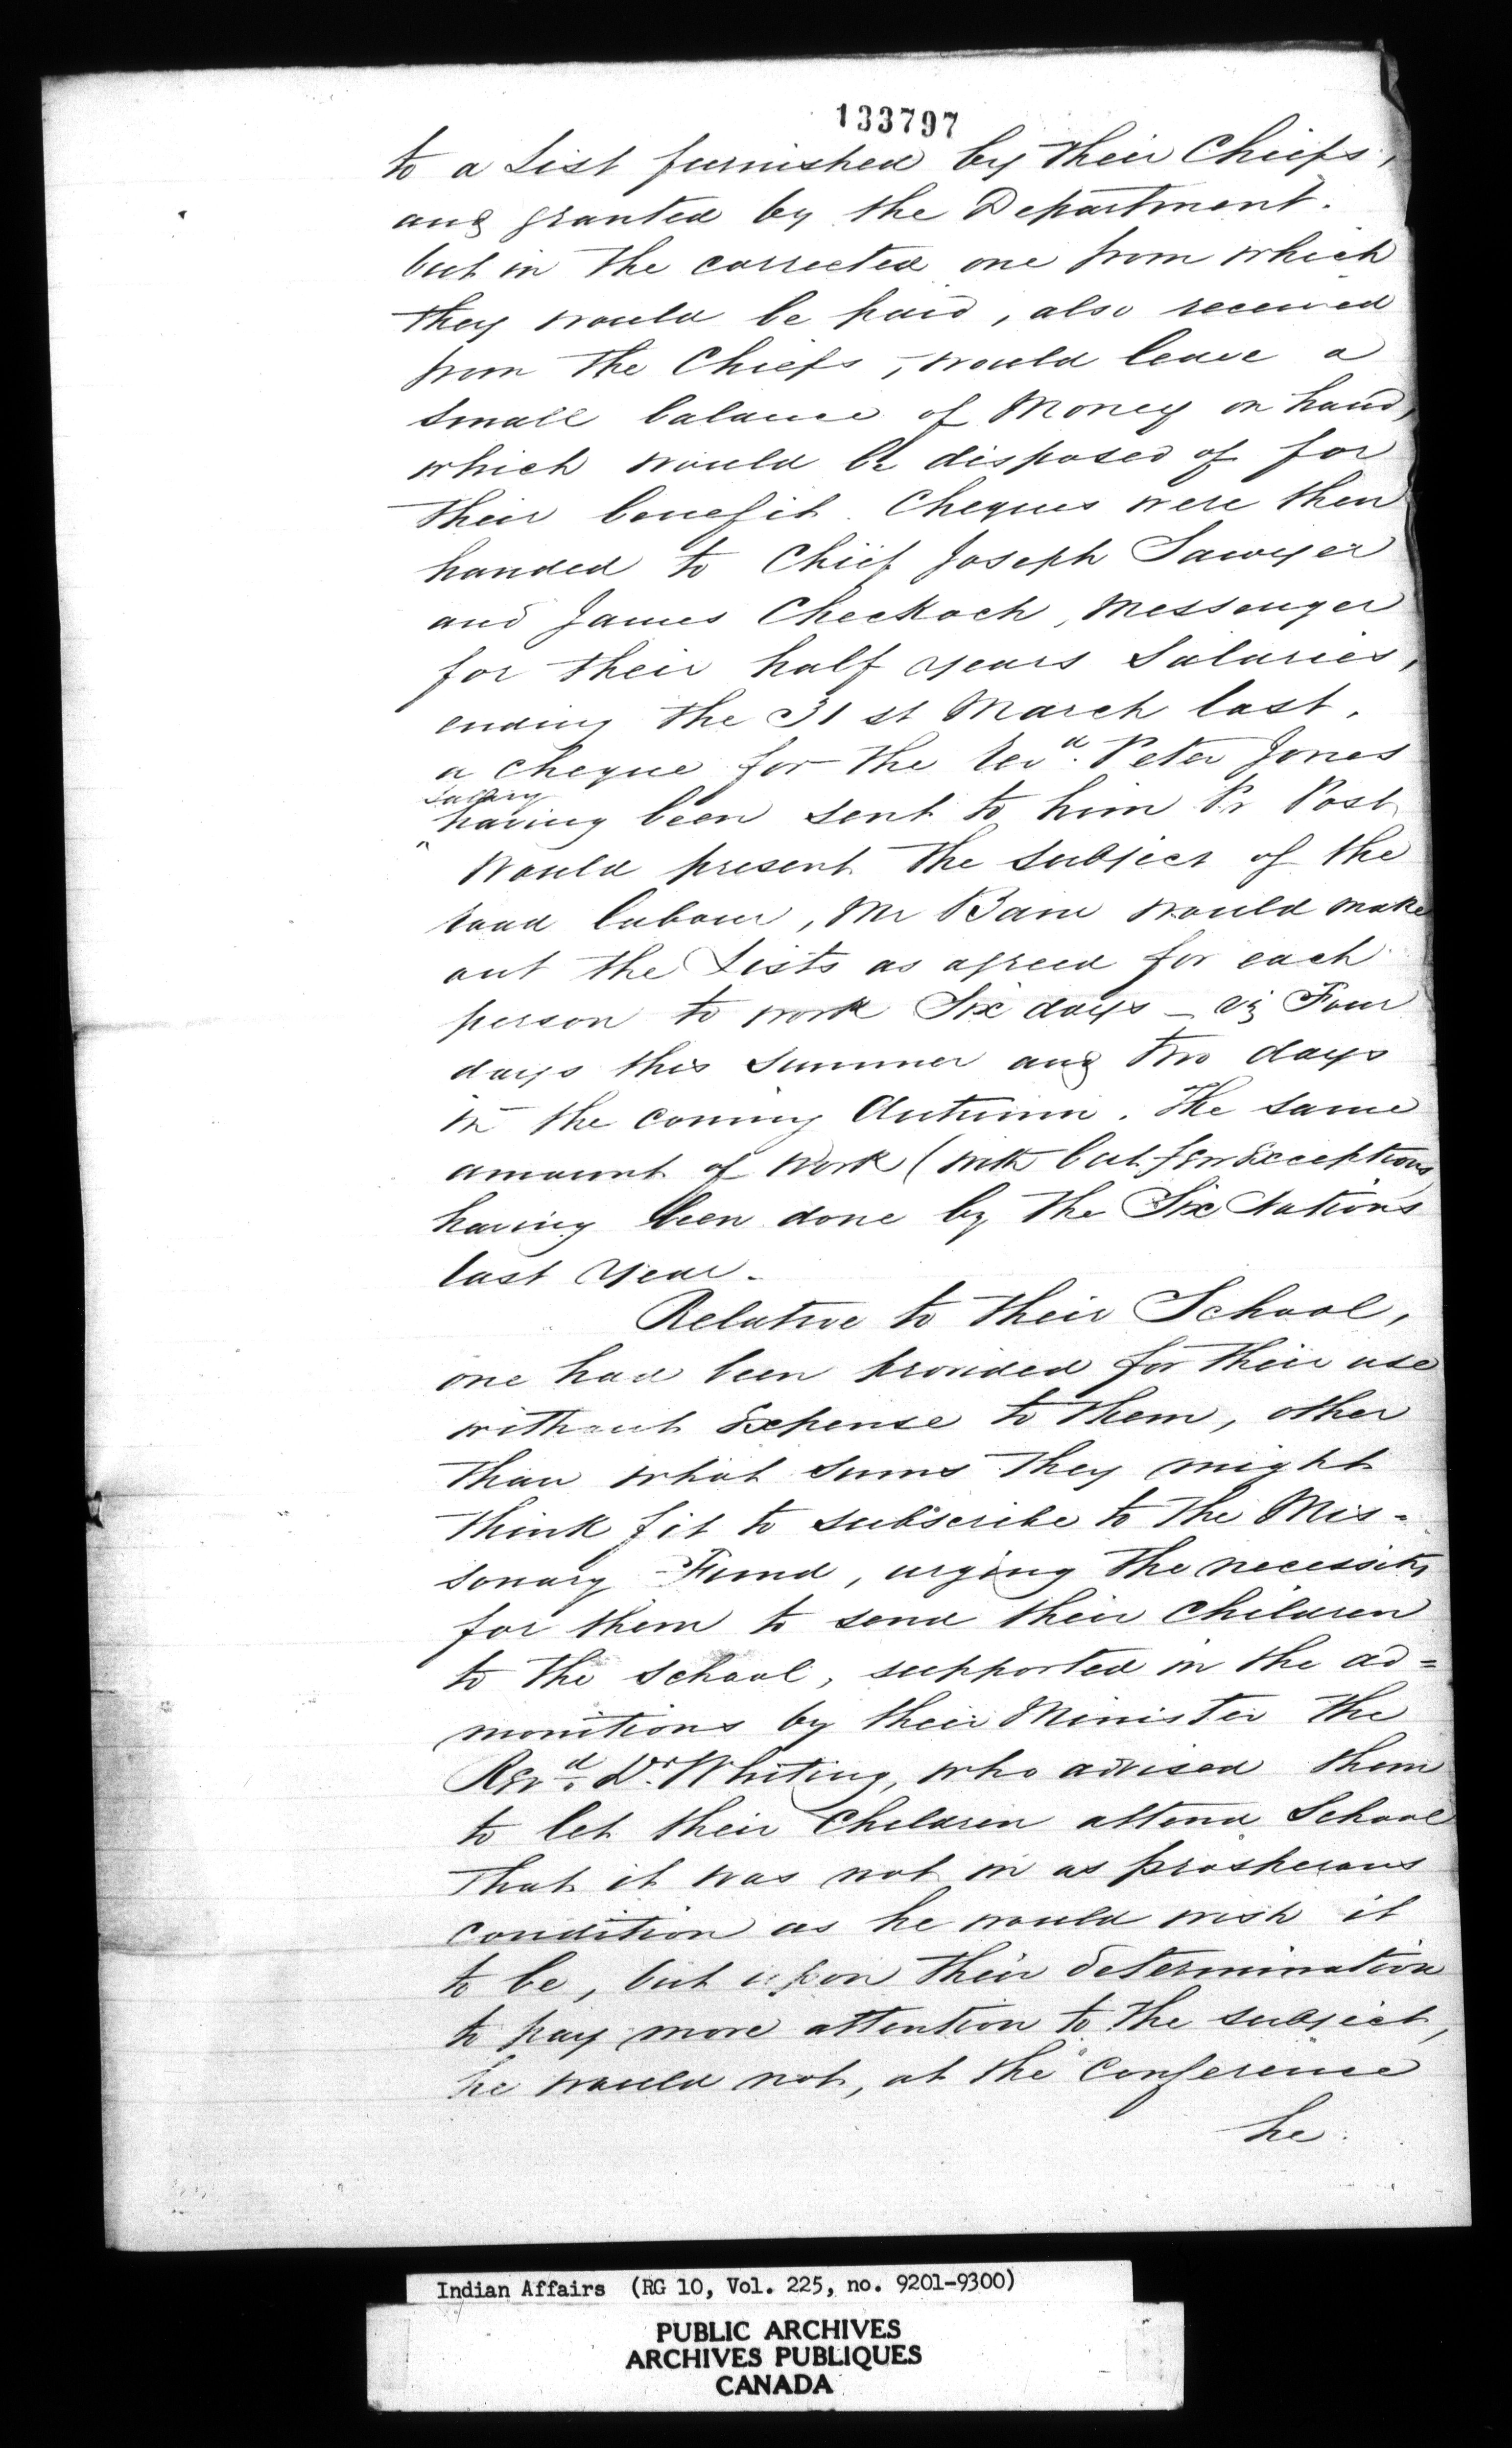 133797
to a List furnished by their Chiefs,
and granted by the Department.
but in the corrected one from which
they would be paid, also received
from the Chiefs, would leave a
small balance of Money on hand,
which would be disposed of for
their benefit. Cheques were then
handed to Chief Joseph Sawyer
and James Checkock, Messenger
for their half years Salaries,
ending the 31st March last.
a cheque for the Revd. Peter Jones
salary
having been sent to him Pr Post
Would present the subject of the
road labour, Mr Bain would make
out the Lists as agreed for each
person to work Six days - viz Four
days this summer and two days
in the coming Autumn. The same
amount of work (with but few Exceptions
having been done by the Six Nations
last year.
Relative to their School,
one had been provided for their use
without Expense to them, other
than what sums they might
think fit to subscribe to the Mis-
sonary Fund, urging the necessity
for them to send their children
to the school, supported in the ad=
monitions by their Minister the
Revd. Dr. Whiting, who advised them
to let their Children attend School
that it was not in as prosperous
condition as he would wish it
to be, but upon their determination
to pay more attention to the subject,
he would not, at the Conference
he
Indian Affairs (RG 10, Vol. 225, no. 9201-9300)
PUBLIC ARCHIVES
ARCHIVES PUBLIQUES
CANADA